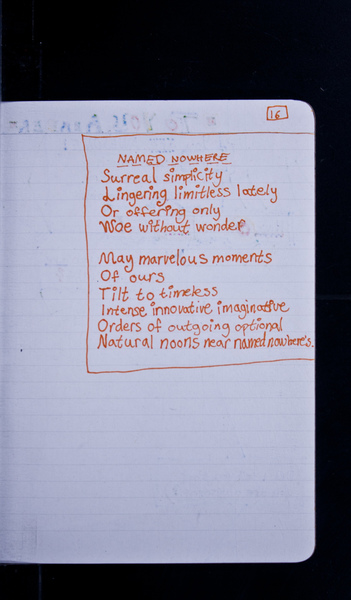 16
NAMED NOWHERE
Surreal simplicity
Lingering limitless lately
Or offering only
Woe without wonder
May marvelous moments
Of ours
Tilt to timeless
Intense innovative imaginative
Orders of outgoing optional
Natural noons near named nowhere's.